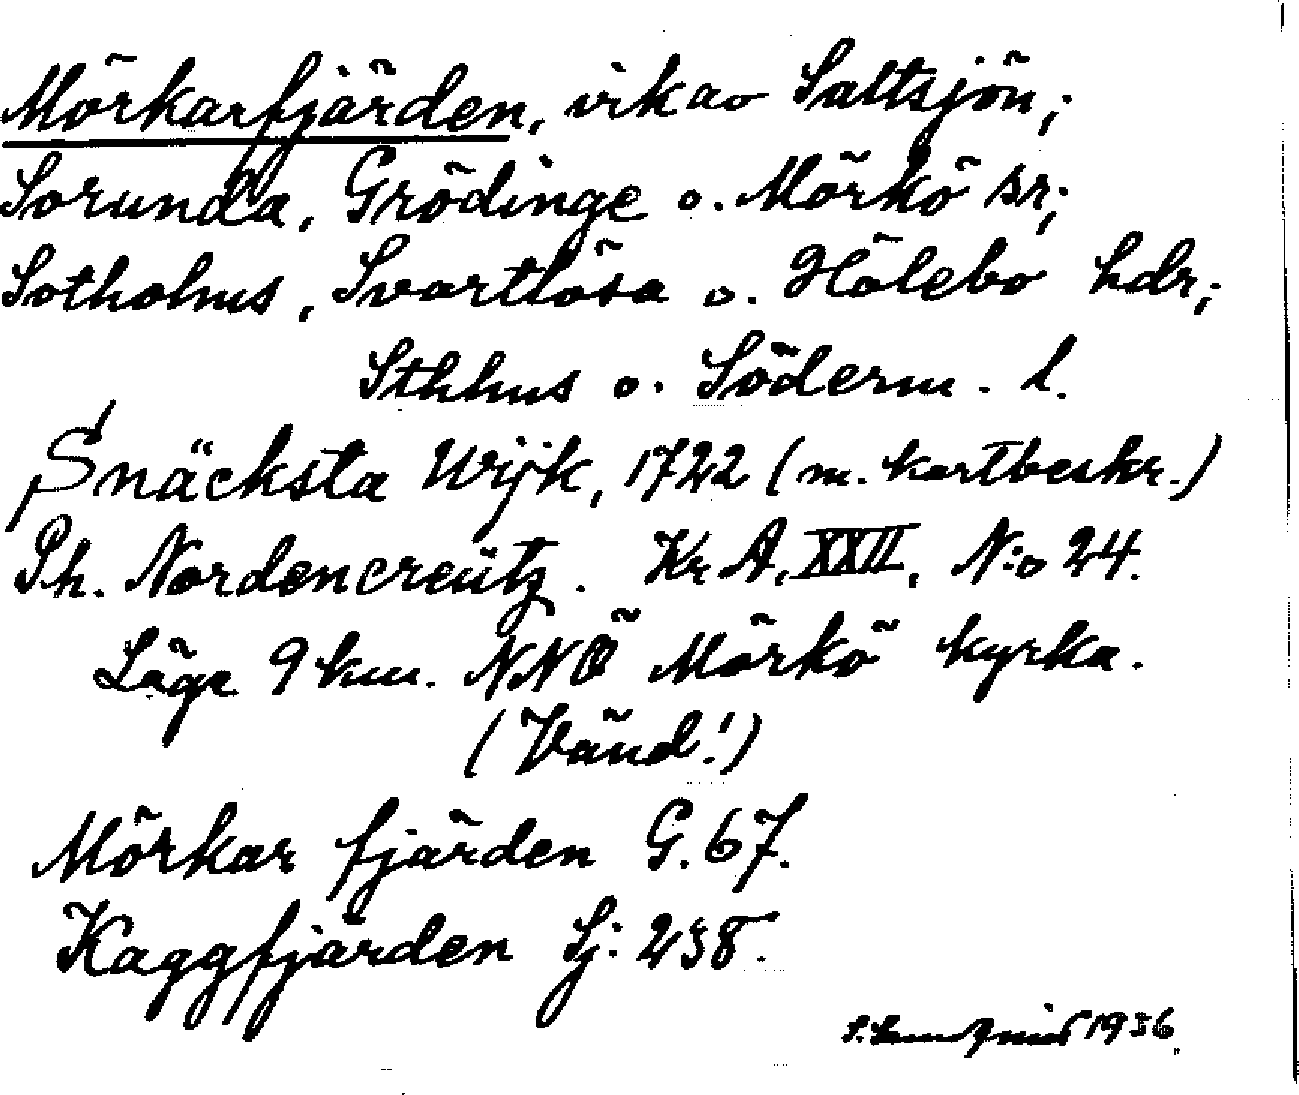 Mörkarfjärden, vik av Saltsjön;
Sorunda, Grödinge o. Mörkö sr;
Sotholms, Svartlösa o. Hölebo hdr;
Sthlms o. Söderm. l.
Snäcksta Wijk, 1722 (m. kartbeskr.)
Ph. Nordencreütz. Kr A, XXII, N:o 24.
Läge 9 km. NNÖ Mörkö kyrka.
(Vänd!)
Mörkar fjärden G. 67.
Kaggfjärden Sj: 238.
1936